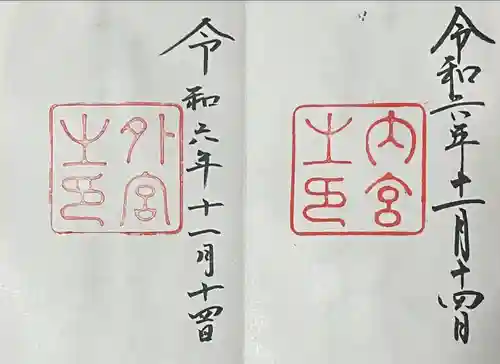 令和六年十一月十四日
内宮之印
令和六年十一月十四日
外宮之印